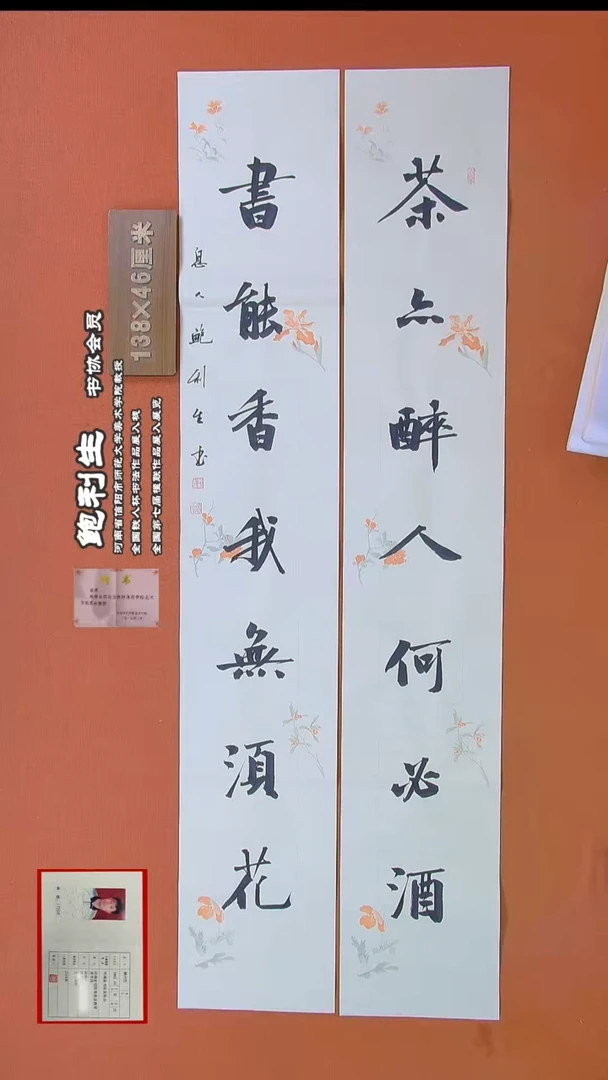 茶亦醉人何必酒
書能香我無湏花
息人鲍利生书
138×46厘米
鲍利生 书协会员
河南省信阳市师范大学美术学院教授
全国铁人杯书法作品展入
全国第七届楹联作品展入展览
聘书